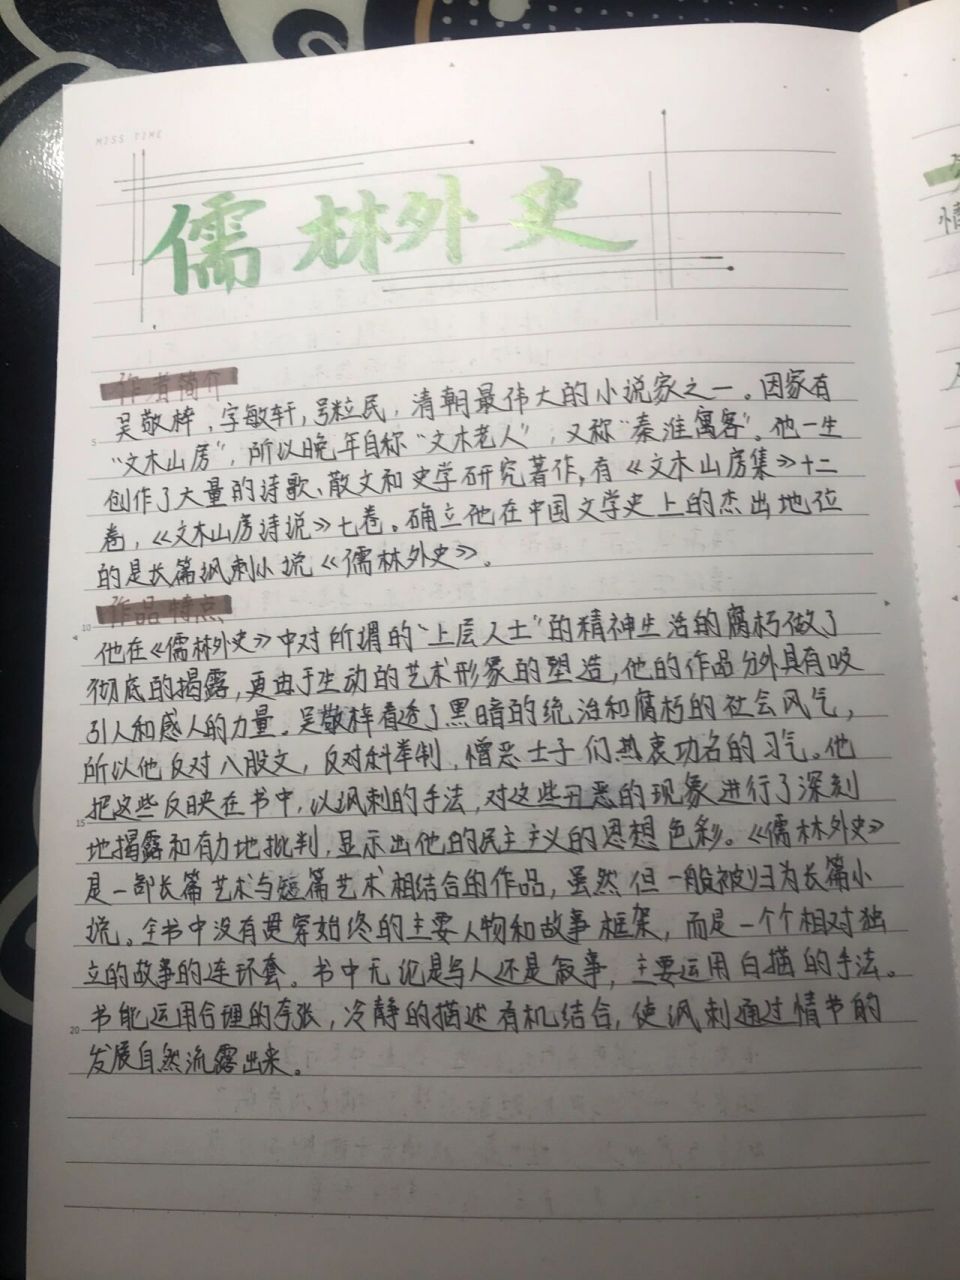 MISS TIME
儒林外史
作者简介
吴敬梓,字敏轩,号粒民,清朝最伟大的小说家之一。因家有
5
“文木山房”,所以晚年自称“文木老人”,又称“秦淮寓客”。他一生
创作了大量的诗歌、散文和史学研究著作,有《文木山房集》十二
卷,《文木山房诗说》七卷。确立他在中国文学史上的杰出地位
的是长篇讽刺小说《儒林外史》。
作品特点
10
他在《儒林外史》中对所谓的“上层人士”的精神生活的腐朽做了
彻底的揭露,更由于生动的艺术形象的塑造,他的作品分外具有吸
引人和感人的力量。吴敬梓看透了黑暗的统治和腐朽的社会风气,
所以他反对八股文,反对科举制,憎恶士子们热衷功名的习气。他
把这些反映在书中,以讽刺的手法,对这些丑恶的现象进行了深刻
15
地揭露和有力地批判,显示出他的民主主义的思想色彩。《儒林外史》
是一部长篇艺术与短篇艺术相结合的作品,虽然但一般被归为长篇小
说。全书中没有贯穿始终的主要人物和故事框架,而是一个个相对独
立的故事的连环套。书中无论是写人还是叙事,主要运用白描的手法。
书能运用合理的夸张,冷静的描述有机结合,使讽刺通过情节的
20
发展自然流露出来。
情